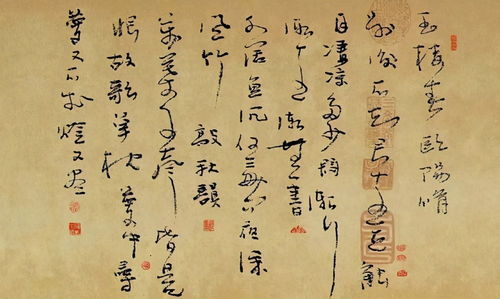 玉樓春 歐陽修
別後不知君遠近觸
目淒涼多少悶漸行
漸遠漸無書
水闊魚沉何處問夜深
風竹敲秋韻
萬葉千聲皆是
恨故欹單枕夢中尋
夢又不成燈又燼